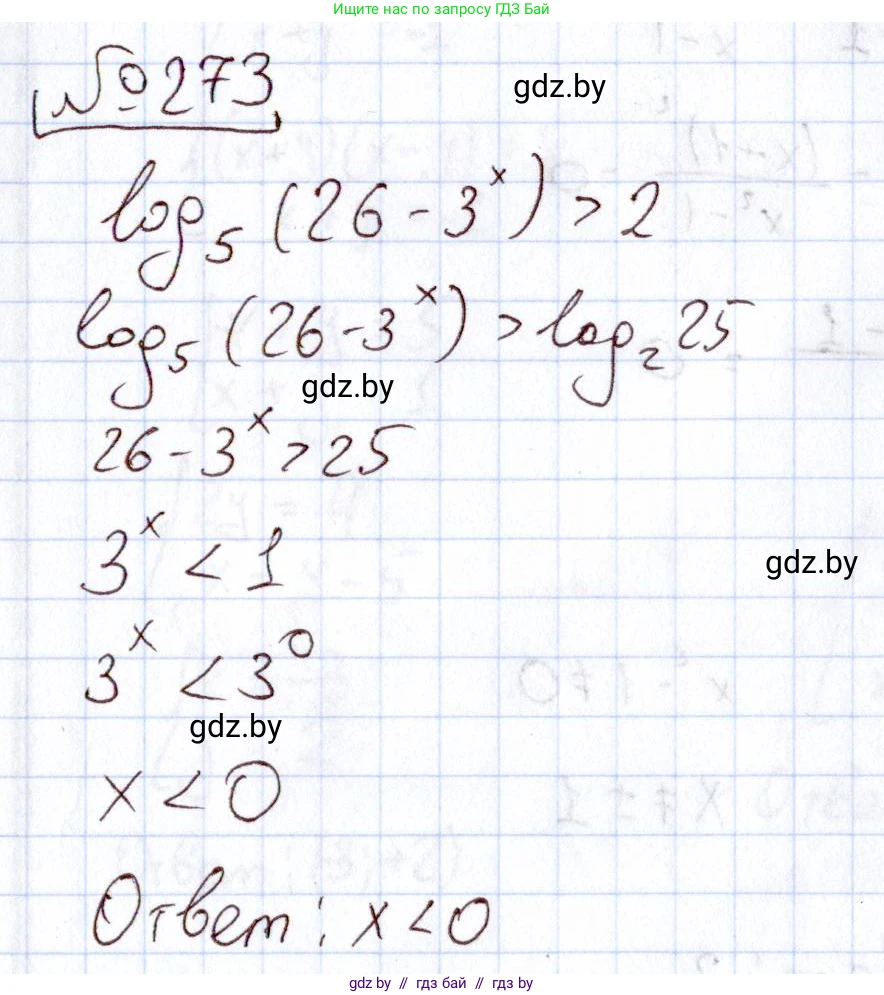 Ищите нас по запросу ГДЗ Бай
№273
gdz.by
log₅(26-3ˣ)>2
log₅(26-3ˣ)>log₂25
gdz.by
26-3ˣ>25
3ˣ<1
gdz.by
3ˣ<3⁰
gdz.by
x<0
Ответ: x<0
gdz.by // гдз бай // gdz.by